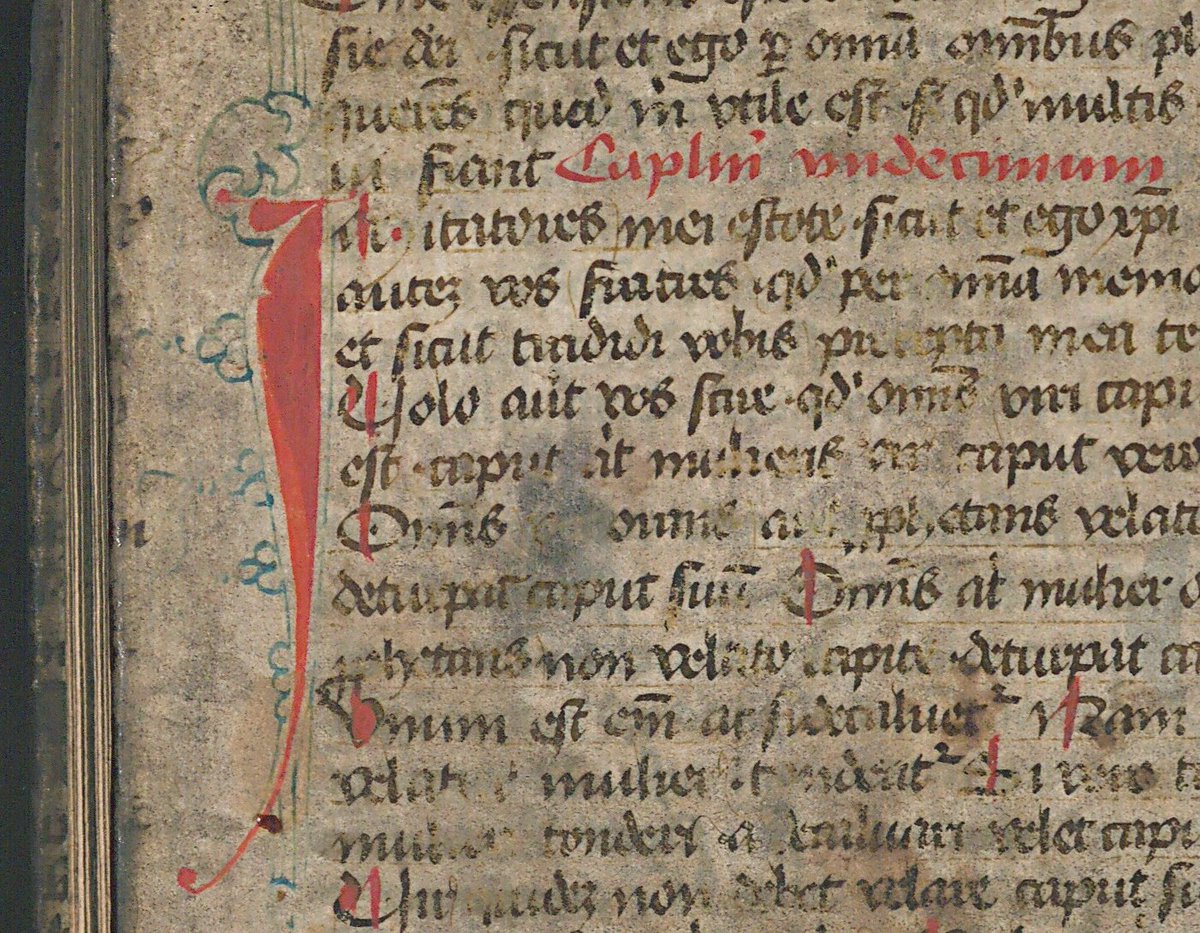 sie dei · sicut et ego ꝑ om̄ia om̄ibus pl
querēs quod m̄ vtile est · sꝫ qd' multis
ut fiant Caplm̄ vndecimum
Imitatores mei estote · sicut et ego xp̄i
autez vos fratres · qd' per om̄ia memo
et sicut tradidi vobis precepta mea te
Uolo aūt vos scire · qd' om̄is viri capu
est · caput āt mulieris vir caput vero
Om̄is orans aut prophetans velato
deturpat caput suū Om̄is āt mulier o
phetans non velato capite · deturpat ca
Vnum est em̄ ac si decaluet᷑ Nam
velat mulier tondeat᷑ Si vero t
mulieri tonderi a decaluari velet capu
Uir quidez non debet velare caput su